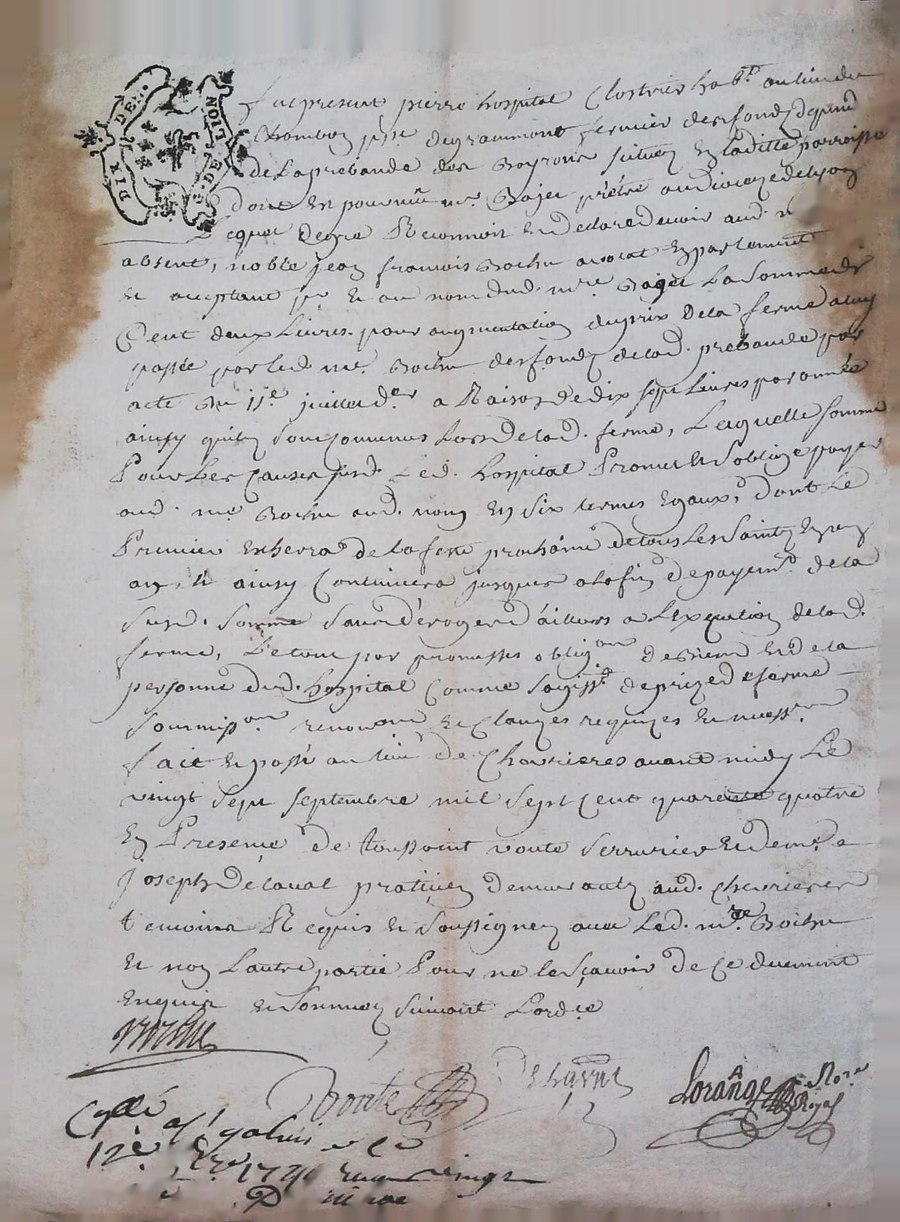 DIX DE.
G. DE LION
fut present pierre hospital Clostrier hab.t au lieu du
Chambon psse. de grammont fermier des fonds dependt
de la prebande des Boyrons scituez en laditte parroisse
dont est pourvu mre. Bajet prêtre au dioceze de Lyon
Lequel de gré Reconnoit et declare devoir aud.
absent, noble jean françois Bochu avocat en parlement
et acceptant pr. et au nom dud. mre. Bajet La Somme de
Cent deux Livres pour augmentation du prix de la ferme a luy
passée par led. mre. Bochu des fonds de lad. prebande par
acte du 11e. juillet der. a Raison de dix sept Livres par année
ainsy quils sont Convenus Lors de lad. ferme, Laquelle somme
Pour Les Causes susd. Led. hospital Promet et s'oblige payer
aud. mre. Bochu aud. nom En Six termes Egaux, dont Le
Premier Escherra de la feste prochaine de tous Les Saints En un
an, et ainsy Continuera jusques a la fin de payemt. de la
susd. somme sans déroger d'ailleurs a L'execution de lad.
ferme, Le tout par promesses obligaon de ses biens et de la
personne dud. hospital Comme s'agisst. de prix de ferme
soummissaon renonaon et Clauzes requizes et necessres
fait et passé au lieu de Chevrieres avant midy Le
vingt sept septembre mil sept Cent quarente quatre
En Presence de toussaint voute serrurier et de mre.
Joseph Delaval praticien demeurants aud. Chevrieres
temoins Requis et soussignez avec Led. mre. Bochu
et non L'autre partie Pour ne le sçavoir de ce duement
Enquis et sommez suivant L'ordce
Bochu
Voute
Delaval
Lorange Nore Royal
Collé
12e